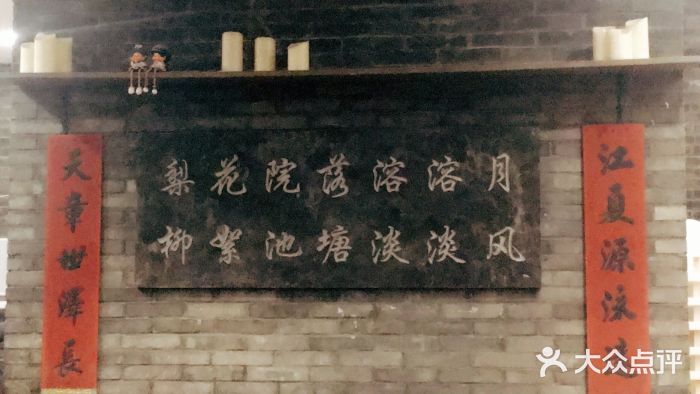 梨花院落溶溶月
柳絮池塘淡淡风
江夏源泳远
天章世泽长
大众点评